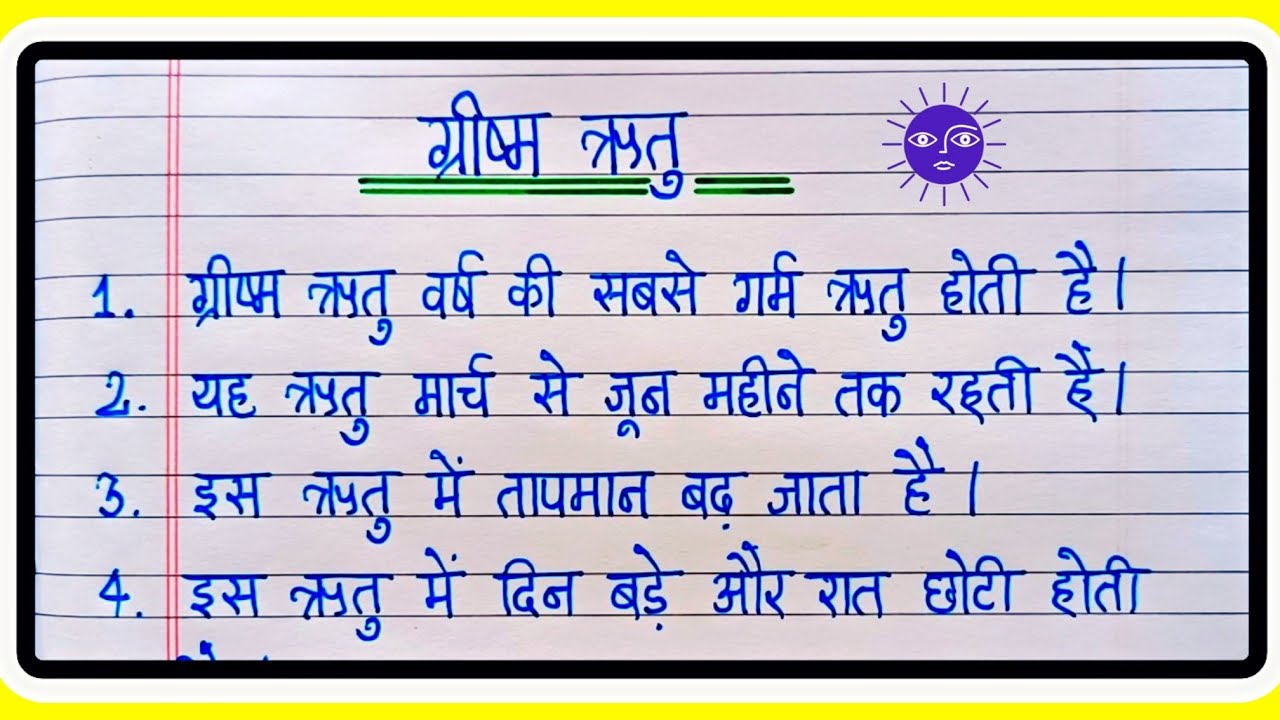 ग्रीष्म ऋतु
1. ग्रीष्म ऋतु वर्ष की सबसे गर्म ऋतु होती है।
2. यह ऋतु मार्च से जून महीने तक रहती है।
3. इस ऋतु में तापमान बढ़ जाता है।
4. इस ऋतु में दिन बड़े और रात छोटी होती